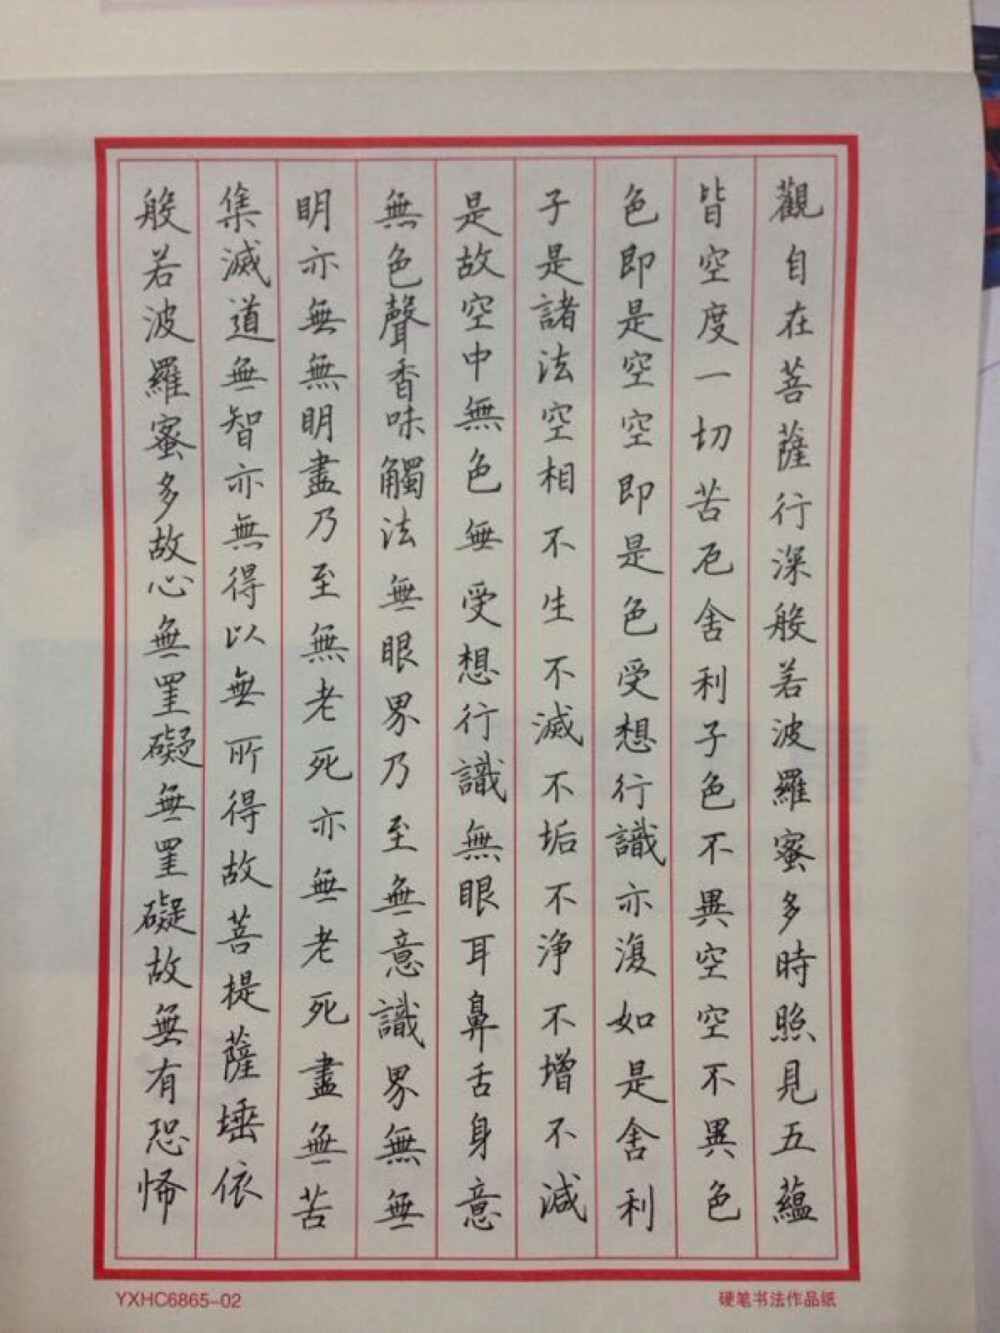 觀自在菩薩行深般若波羅蜜多時照見五蘊
皆空度一切苦厄舍利子色不異空空不異色
色即是空空即是色受想行識亦復如是舍利
子是諸法空相不生不滅不垢不淨不增不減
是故空中無色無受想行識無眼耳鼻舌身意
無色聲香味觸法無眼界乃至無意識界無無
明亦無無明盡乃至無老死亦無老死盡無苦
集滅道無智亦無得以無所得故菩提薩埵依
般若波羅蜜多故心無罣礙無罣礙故無有恐怖
YXHC6865-02
硬笔书法作品纸